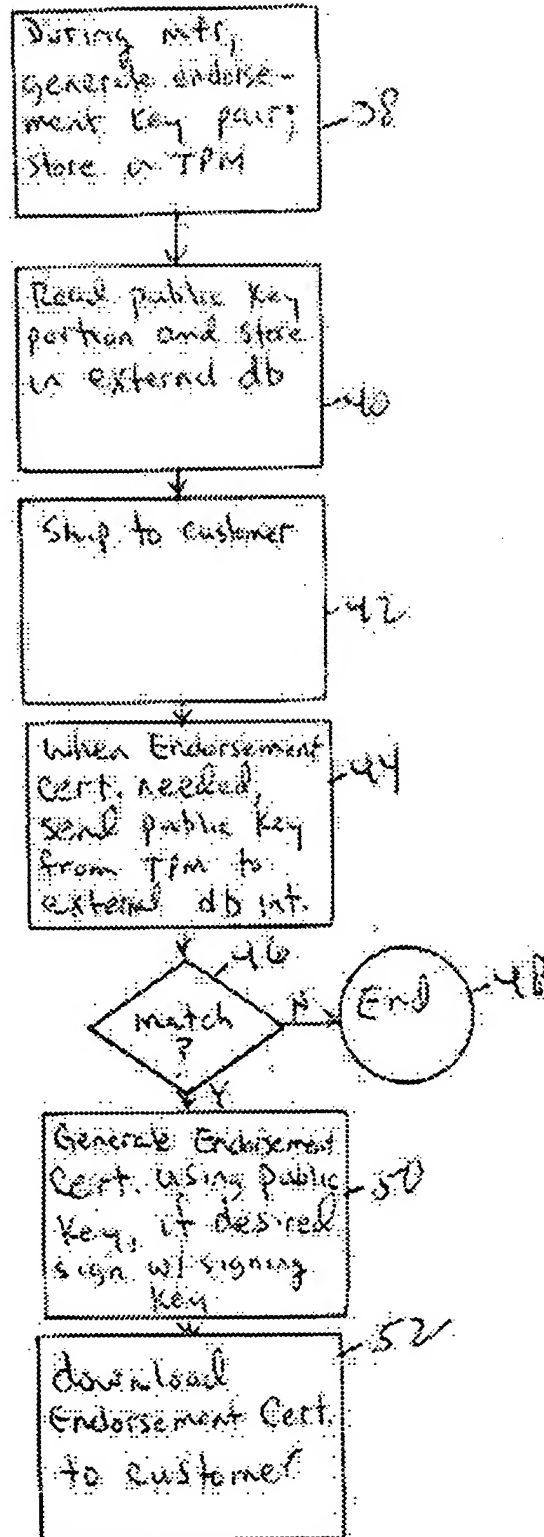 During mfr,
generate endorse-
ment key pair;
store in TPM
38
Read public key
portion and store
in external db
40
Ship to customer
42
When Endorsement
Cert. needed,
send public key
from TPM to
external db int.
44
46
Match
?
N
End
48
Y
Generate Endorsement
Cert. using public
key, if desired
sign w/ signing
key
50
download
Endorsement Cert.
to customer
52